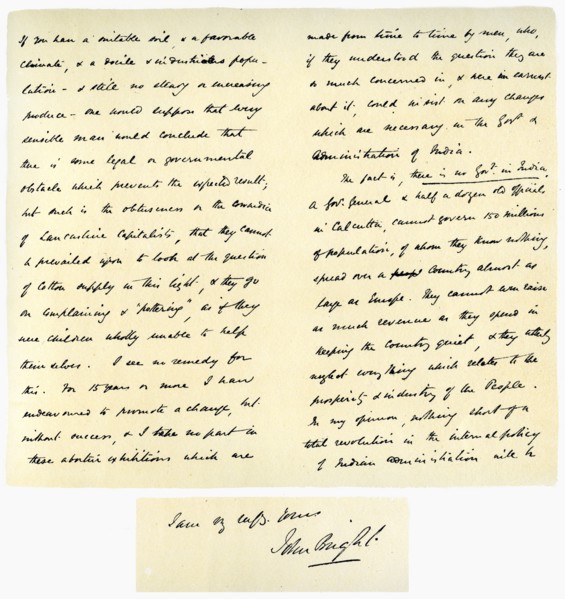 If you have a suitable soil, & a favorable
climate, & a docile & industrious popu-
lation - & still no steady or increasing
produce - one would suppose that every
sensible man would conclude that
there is some legal or governmental
obstacle which prevents the expected result;
but such is the obtuseness or the cowardice
of Lancashire Capitalists, that they cannot
be prevailed upon to look at the question
of Cotton supply in this light, & they go
on complaining & "pottering", as if they
were children wholly unable to help
themselves. I see no remedy for
this. For 15 years or more I have
endeavoured to promote a change, but
without success, & I take no part in
these abortive exhibitions which are
made from time to time by men, who,
if they understood the question they are
so much concerned in, & were in earnest
about it, could insist on any changes
which are necessary in the Govt &
Administration of India.
The fact is, there is no Govt. in India,
A Govr. General & half a dozen old officials
in Calcutta, cannot govern 150 millions
of population, of whom they know nothing,
spread over a country almost as
large as Europe. They cannot even raise
as much revenue as they spend in
keeping the Country quiet, & they utterly
neglect everything which relates to the
prosperity & industry of the People.
In my opinion, nothing short of a
total revolution in the internal policy
of Indian administration will be
I am very respy. Yours
John Bright.